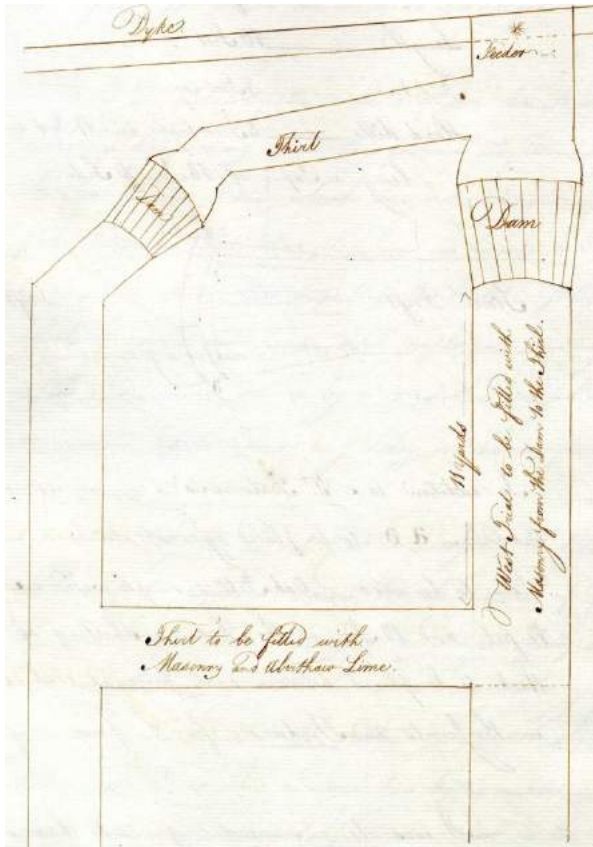 Dyke.
Feeder
Thirl
Dam
Dam
11 yards
West Trial to be filled with
Masonry from the Dam to the Thirl.
Thirl to be filled with
Masonry and Aberthaw Lime.